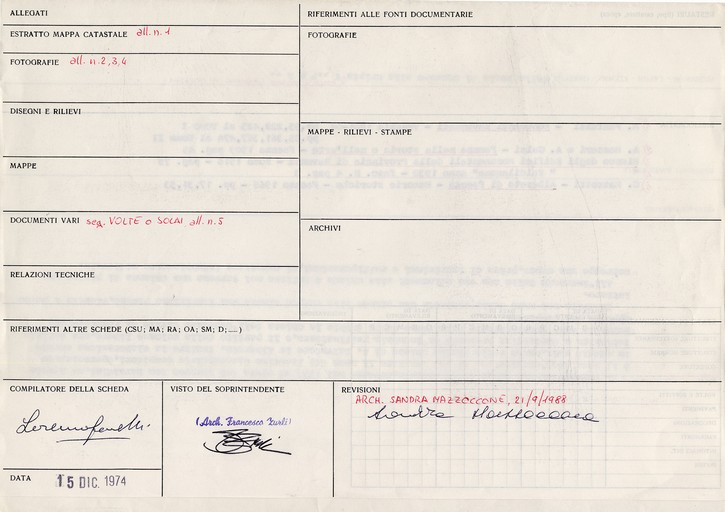 ALLEGATI
ESTRATTO MAPPA CATASTALE all. n. 1
FOTOGRAFIE all. n. 2,3,4
DISEGNI E RILIEVI
MAPPE
DOCUMENTI VARI seg. VOLTE o SOLAI all. n. 5
RELAZIONI TECNICHE
RIFERIMENTI ALLE FONTI DOCUMENTARIE
FOTOGRAFIE
MAPPE - RILIEVI - STAMPE
ARCHIVI
RIFERIMENTI ALTRE SCHEDE (CSU; MA; RA; OA; SM; D; __ )
COMPILATORE DELLA SCHEDA
DATA 15 DIC. 1974
VISTO DEL SOPRINTENDENTE
(Arch. Francesco Zurli)
REVISIONI
ARCH. SANDRA MAZZOCCONE, 21/9/1988
Sandra